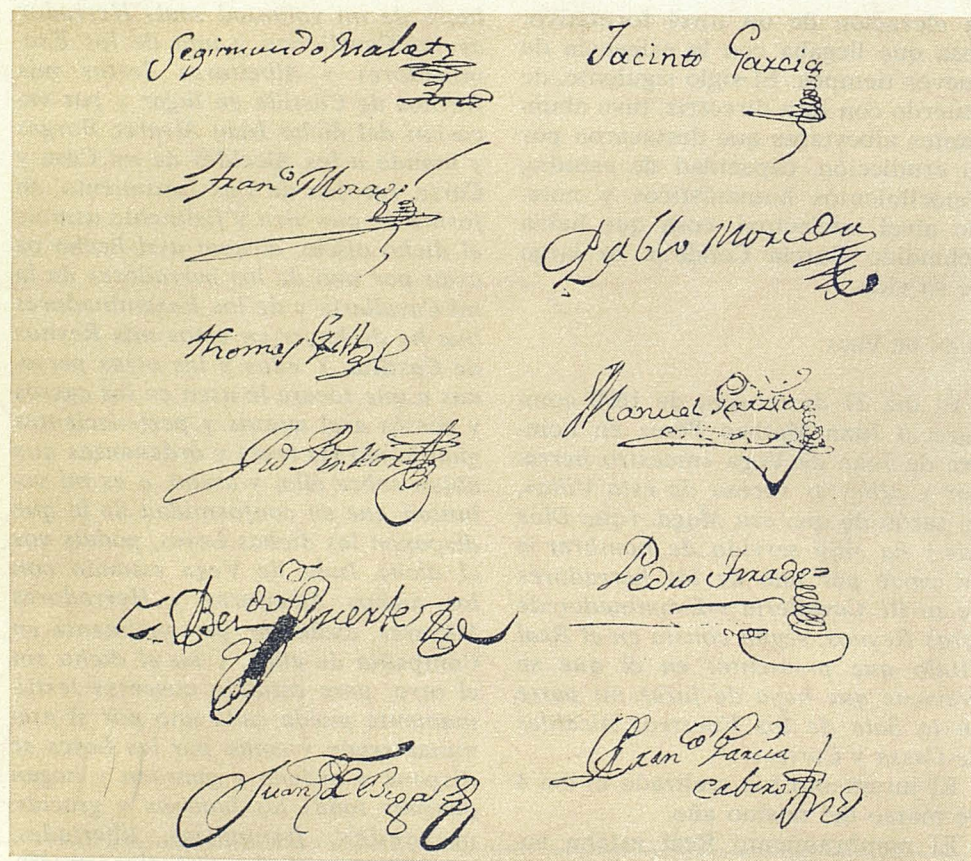 Segimundo Malats
Fran.co Morago
Thomas
Ju.o Pintor
Ber.do Huerte
Juan de Biga
Jacinto Garcia
Pablo Moreda
Manuel Garzia
Pedro Jurado=
Fran.co Garcia
Cabero